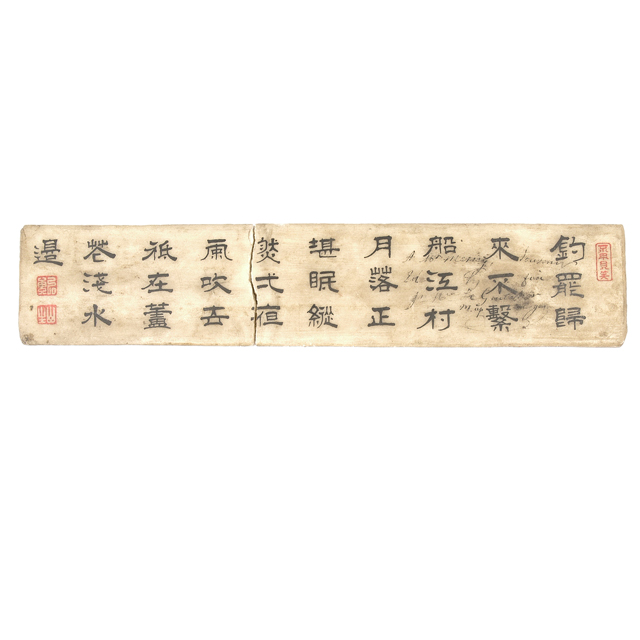 釣罷歸
來不繫
船江村
月落正
堪眠縱
然弌夜
風吹去
祗在蘆
花淺水
邊